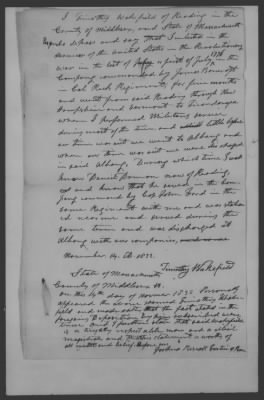 I Timothy Wakefield of Reading in the
County of Middlesex, and State of Massachusetts
depose and say that I enlisted in the
service of the United States in the Revolutionary
war in the last of part of July, in the
Company commanded by James Bancroft
in Col. Regiment, for five months
and went from said Reading through New
Hampshire and Vermont to Ticonderoga
where I performed Military service
during most of the time and a little before
our time was out we went to Albany and
when our time was out we were discharged
in said Albany, During which time I was
know Daniel Damon now of Reading,
and know that he served in the com-
pany commanded by Capt John Ford in the
same Regiment with me and was station-
ed near me and served during the
same term and was discharged at
Albany with our companies,
November 14th 1832.
Timothy Wakefield
State of Massachusetts
County of Middlesex ss.
On the 14th day of November 1832 Personally
appeared the above named Timothy Wake-
field and made oath that the facts stated in the
foregoing Deposition by him subscribed were
true And I further state that said Wakefield
is a highly respectable man and a
magistrate and that his statement is worthy
of all credit and belief. Before me
Joshua Prescott Justice of Peace